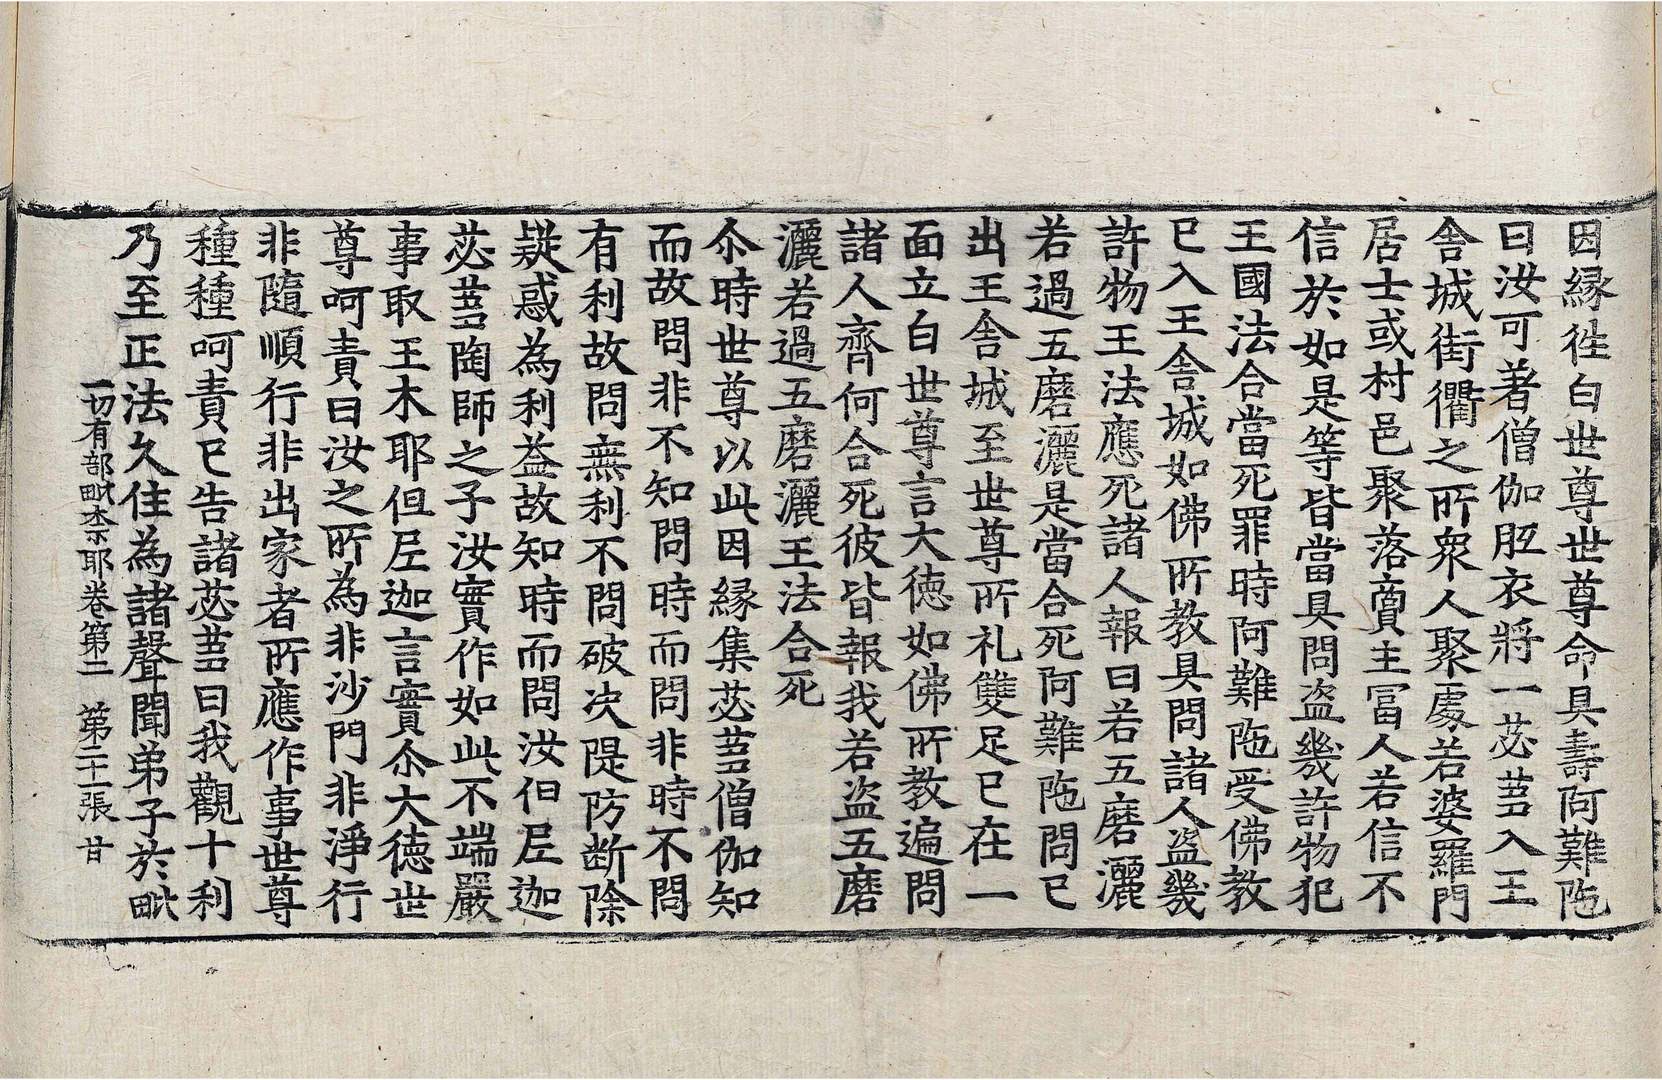 因縁徃白世尊世尊命具壽阿難陁
曰汝可著僧伽胝衣將一苾芻入王
舍城街衢之所衆人聚處若婆羅門
居士或村邑聚落賣主冨人若信不
信於如是等皆當具問盗幾許物犯
王國法合當死罪時阿難陁受佛教
已入王舍城如佛所教具問諸人盗幾
許物王法應死諸人報曰若五磨灑
若過五磨灑是當合死阿難陁問已
出王舍城至世尊所礼雙足已在一
面立白世尊言大德如佛所教遍問
諸人齊何合死彼皆報我若盗五磨
灑若過五磨灑王法合死
尒時世尊以此因縁集苾芻僧伽知
而故問非不知問時而問非時不問
有利故問無利不問破决隄防断除
疑惑為利益故知時而問汝但𡰱迦
苾芻陶師之子汝實作如此不端嚴
事取王木耶但𡰱迦言實尒大德世
尊呵責曰汝之所為非沙門非淨行
非隨順行非出家者所應作事世尊
種種呵責已告諸苾芻曰我觀十利
乃至正法久住為諸聲聞弟子於毗
一切有部毗奈耶卷第二 第二十一張 甘